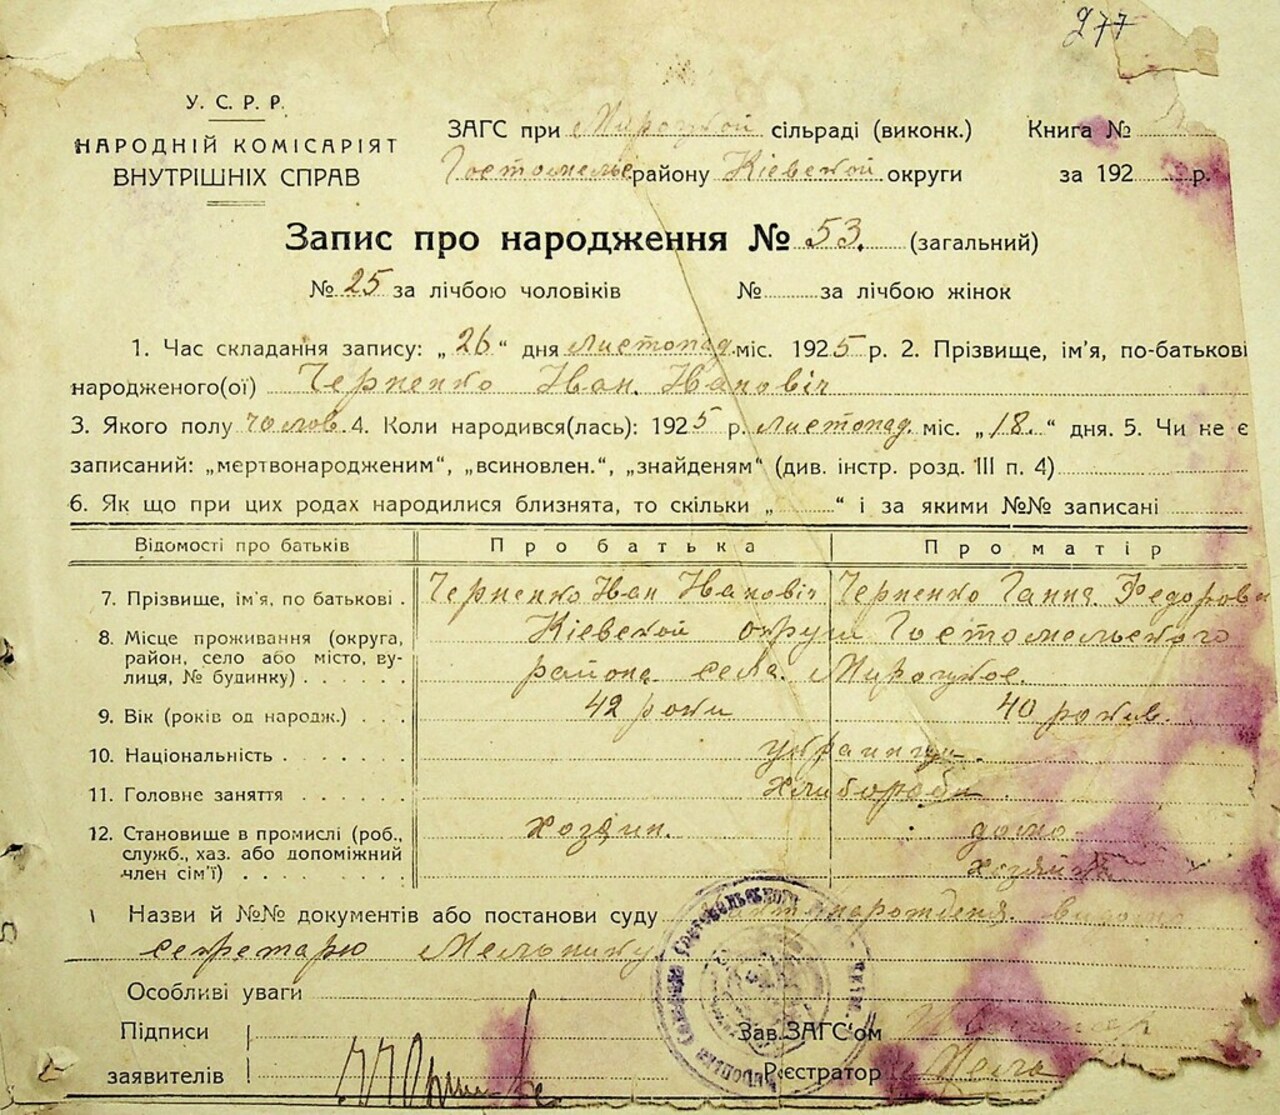 277
У. С. Р. Р.
НАРОДНІЙ КОМІСАРІЯТ
ВНУТРІШНІХ СПРАВ
ЗАГС при Мироцкой сільраді (виконк.) Книга №
Гостомельс району Кіевской округи за 192 р.
Запис про народження № 53. (загальний)
№ 25 за лічбою чоловіків № за лічбою жінок
1. Час складання запису: „26“ дня листопад міс. 1925 р. 2. Прізвище, ім’я, по-батькові
народженого(ої) Черненко Іван Іванович
3. Якого полу чолов. 4. Коли народився(лась): 1925 р. листопад. міс. „18.“ дня. 5. Чи не є
записаний: „мертвонародженим“, „всиновлен.“, „знайденям“ (див. інстр. розд. III п. 4)
6. Як що при цих родах народилися близнята, то скільки „ “ і за якими №№ записані
Відомості про батьків Про батька Про матір
7. Прізвище, ім’я, по батькові . Черненко Іван Іванович Черненко Ганна Федоровн
8. Місце проживання (округа, Кіевской округи Гостомельского
район, село або місто, ву-
лиця, № будинку) . . . . . района села Мироцкое.
9. Вік (років од народж.) . . . 42 роки 40 рокив.
10. Національність . . . . . .
11. Головне заняття . . . . . . хлибороби
12. Становище в промислі (роб., хозяин. домо
служб., хаз. або допоміжний
член сім’ї) . . . . . . . . хозяйка
Назви й №№ документів або постанови суду
секретарю Мельнику
Особливі уваги
Підписи Зав. ЗАГС‘ом
заявителів Реєстратор